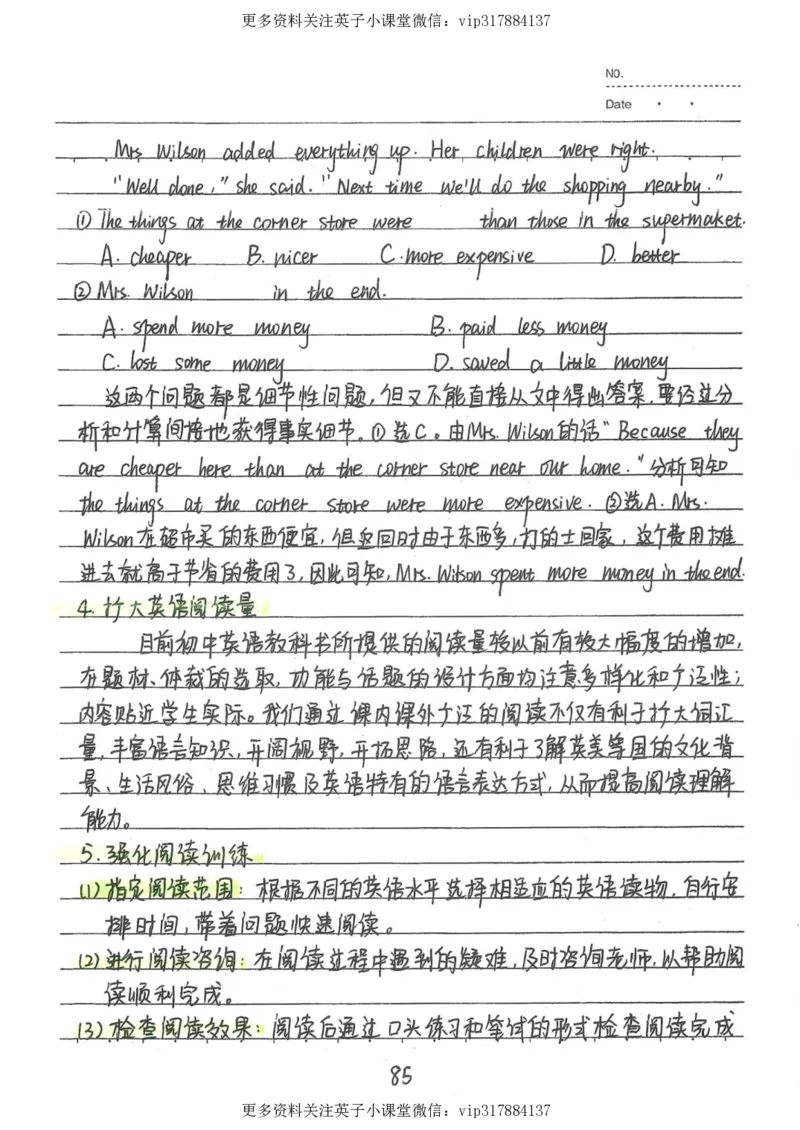 更多资料关注英子小课堂微信：vip317884137
NO.
Date
Mrs Wilson added everything up. Her children were right.
"Well done," she said. "Next time we'll do the shopping nearby."
①The things at the corner store were than those in the supermaket.
A. cheaper B. nicer C. more expensive D. better
②Mrs. Wilson in the end.
A. spend more money B. paid less money
C. lost some money D. saved a little money
这两个问题都是细节性问题,但又不能直接从文中得出答案,要经过分
析和计算间接地获得事实细节。①选C。由Mrs. Wilson的话"Because they
are cheaper here than at the corner store near our home."分析可知
the things at the corner store were more expensive. ②选A. Mrs.
Wilson在超市买的东西便宜,但返回时由于东西多,打的士回家,这个费用摊
进去就高于节省的费用了,因此可知,Mrs. Wilson spent more money in the end.
4. 扩大英语阅读量
目前初中英语教科书所提供的阅读量较以前有较大幅度的增加,
在题材、体裁的选取,功能与话题的设计方面均注意多样化和广泛性;
内容贴近学生实际。我们通过课内课外广泛的阅读不仅有利于扩大词汇
量,丰富语言知识,开阔视野,开拓思路,还有利于了解英美等国的文化背
景、生活风俗、思维习惯及英语特有的语言表达方式,从而提高阅读理解
能力。
5. 强化阅读训练
(1)指定阅读范围:根据不同的英语水平选择相适应的英语读物,自行安
排时间,带着问题快速阅读。
(2)进行阅读咨询:在阅读过程中遇到的疑难,及时咨询老师,以帮助阅
读顺利完成。
(3)检查阅读效果:阅读后通过口头练习和笔试的形式检查阅读完成
85
更多资料关注英子小课堂微信：vip317884137